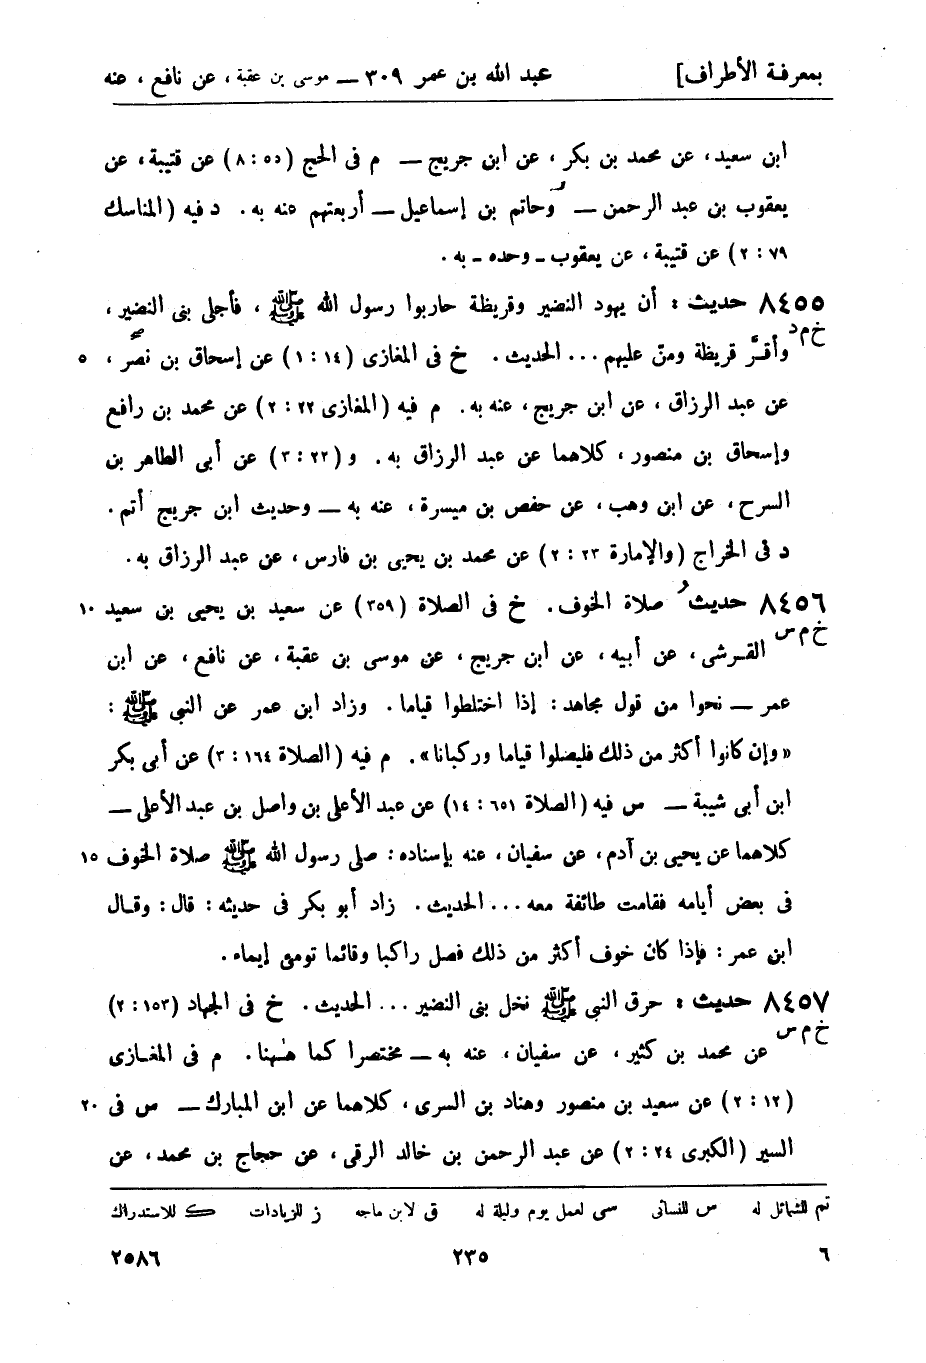 بمعرفة الأطراف] عبد الله بن عمر ٣٠٩ — موسى بن عقبة ، عن نافع ، عنه
ابن سعيد، عن محمد بن بكر ، عن ابن جريج — م فى الحج (٥د : ٨) عن قتيبة ، عن
يعقوب بن عبد الرحمن — وحاتم بن إسماعيل — أربعتهم عنه به. د فيه (المناسك
٧٩ : ٢) عن قتيبة ، عن يعقوب ـ وحده ـ به .
٨٤٥٥ حديث : أن يهود النضير وقريظة حاربوا رسول الله ﷺ ، فأجلى بنى النضير ،
خ م د وأقـرَّ قريظة ومنّ عليهم ... الحديث . خ فى المغازى (١٤ : ١) عن إسحاق بن نصر ، ٥
عن عبد الرزاق ، عن ابن جريج ، عنه به. م فيه (المغازى ٢٢ : ٢) عن محمد بن رافع
وإسحاق بن منصور ، كلاهما عن عبد الرزاق به. و (٢٢ : ٣) عن أبى الطاهر بن
السرح ، عن ابن وهب ، عن حفص بن ميسرة ، عنه به — وحديث ابن جريج أتم .
د فى الخراج (والإمارة ٢٣ : ٢) عن محمد بن يحيى بن فارس ، عن عبد الرزاق به.
٨٤٥٦ حديث صلاة الخوف. خ فى الصلاة (٣٥٩) عن سعيد بن يحيى بن سعيد ١٠
خ م س القرشى ، عن أبيه ، عن ابن جريج ، عن موسى بن عقبة ، عن نافع ، عن ابن
عمر — نحوا من قول مجاهد : إذا اختلطوا قياما. وزاد ابن عمر عن النبى ﷺ :
«وإن كانوا أكثر من ذلك فليصلوا قياما وركبانا». م فيه (الصلاة ١٦٤ : ٣) عن أبى بكر
ابن أبى شيبة — س فيه (الصلاة ٦٥١ : ١٤) عن عبد الأعلى بن واصل بن عبد الأعلى —
كلاهما عن يحيى بن آدم ، عن سفيان ، عنه بإسناده : صلى رسول الله ﷺ صلاة الخوف ١٥
فى بعض أيامه فقامت طائفة معه ... الحديث . زاد أبو بكر فى حديثه : قال : وقـال
ابن عمر : فإذا كان خوف أكثر من ذلك فصل راكبا وقائما تومئ إيماء.
٨٤٥٧ حديث : حرق النبى ﷺ نخل بنى النضير ... الحديث. خ فى الجهاد (١٥٣ : ٢)
خ م س عن محمد بن كثير ، عن سفيان ، عنه به — مختصرا كما هٰـهنا. م فى المغـازى
(١٢ : ٢) عن سعيد بن منصور وهناد بن السرى ، كلاهما عن ابن المبارك — س فى ٢٠
السير (الكبرى ٢٤ : ٢) عن عبد الرحمن بن خالد الرقى ، عن حجاج بن محمد ، عن
تم للشمائل له س للنسائى سى لعمل يوم وليلة له ق لابن ماجه ز للزيادات ك للاستدراك
٦ ٢٣٥ ٢٥٨٦